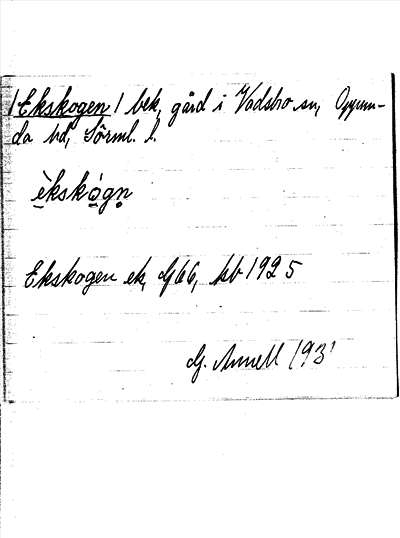 /Ekskogen/ bek, gård i Vadsbro sn, Oppun-
da hd, Sörml. l.
èkskògn̥
Ekskogen ek, G66, kb 1925
G. Annell 193